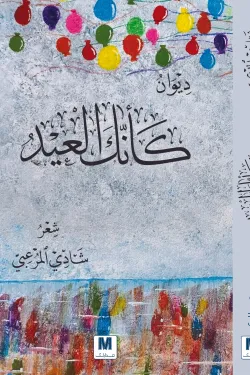 دِيْوَانُ
كَأَنَّكَ العِيْدُ
شِعْرُ
شَادِي المَرْعِبِيّ
M